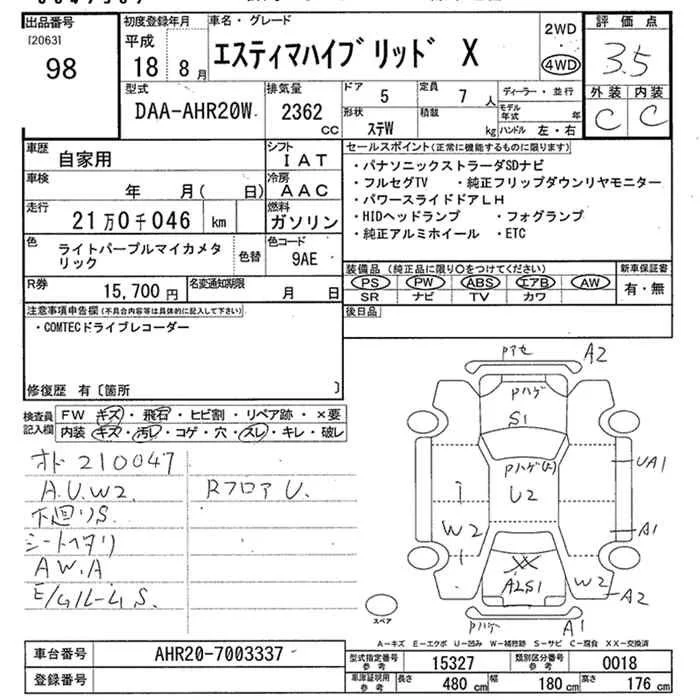 出品番号
[2063]
98
初度登録年月
平成
18 8月
車名・グレード
エスティマハイブリッド X
2WD
・
4WD
評価点
3.5
外装 内装
C C
型式
DAA-AHR20W
排気量
2362
cc
ドア 5
定員 7 人
形状 ステW
積載 kg
ディーラー・並行
モデル年式 年
ハンドル 左・右
車歴
自家用
シフト
IAT
車検
年 月( 日)
冷房
AAC
走行
21万0千046 km
燃料
ガソリン
色
ライトパープルマイカメタリック
色替
色コード
9AE
R券
15,700 円
名変通知期限
月 日
セールスポイント(正常に機能するものに限ります)
・パナソニックストラーダSDナビ
・フルセグTV ・純正フリップダウンリヤモニター
・パワースライドドアLH
・HIDヘッドランプ ・フォグランプ
・純正アルミホイール ・ETC
装備品(純正品に限り○をつけてください)
PS PW ABS エアB AW
SR ナビ TV カワ
新車保証書
有・無
後日品
注意事項申告欄(不具合内容等は具体的に記入して下さい)
・COMTECドライブレコーダー
修復歴 有〔箇所 〕
検査員記入欄
FW キズ・飛石・ヒビ割・リペア跡・×要
内装 キズ・汚レ・コゲ・穴・スレ・キレ・破レ
オド 210047
A.U.W2
下廻りS
シートヘタリ
AW.A
RフロアU.
Pアセ A2
Pハゲ
S1
U2
UA1
A1
W2
XX
A2S1
W2
A2
Pハゲ A1
スペア
A-キズ E-エクボ U-凹み W-補修跡 S-サビ C-腐食 XX-交換済
車台番号
AHR20-7003337
登録番号
型式指定番号 参考
15327
類別区分番号 参考
0018
車庫証明用 参考
長さ 480 cm
幅 180 cm
高さ 176 cm